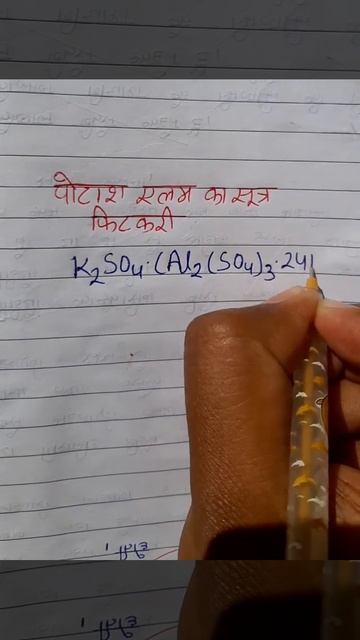 पोटाश एलम का सूत्र
फिटकरी
K₂SO₄·(Al₂(SO₄)₃·24